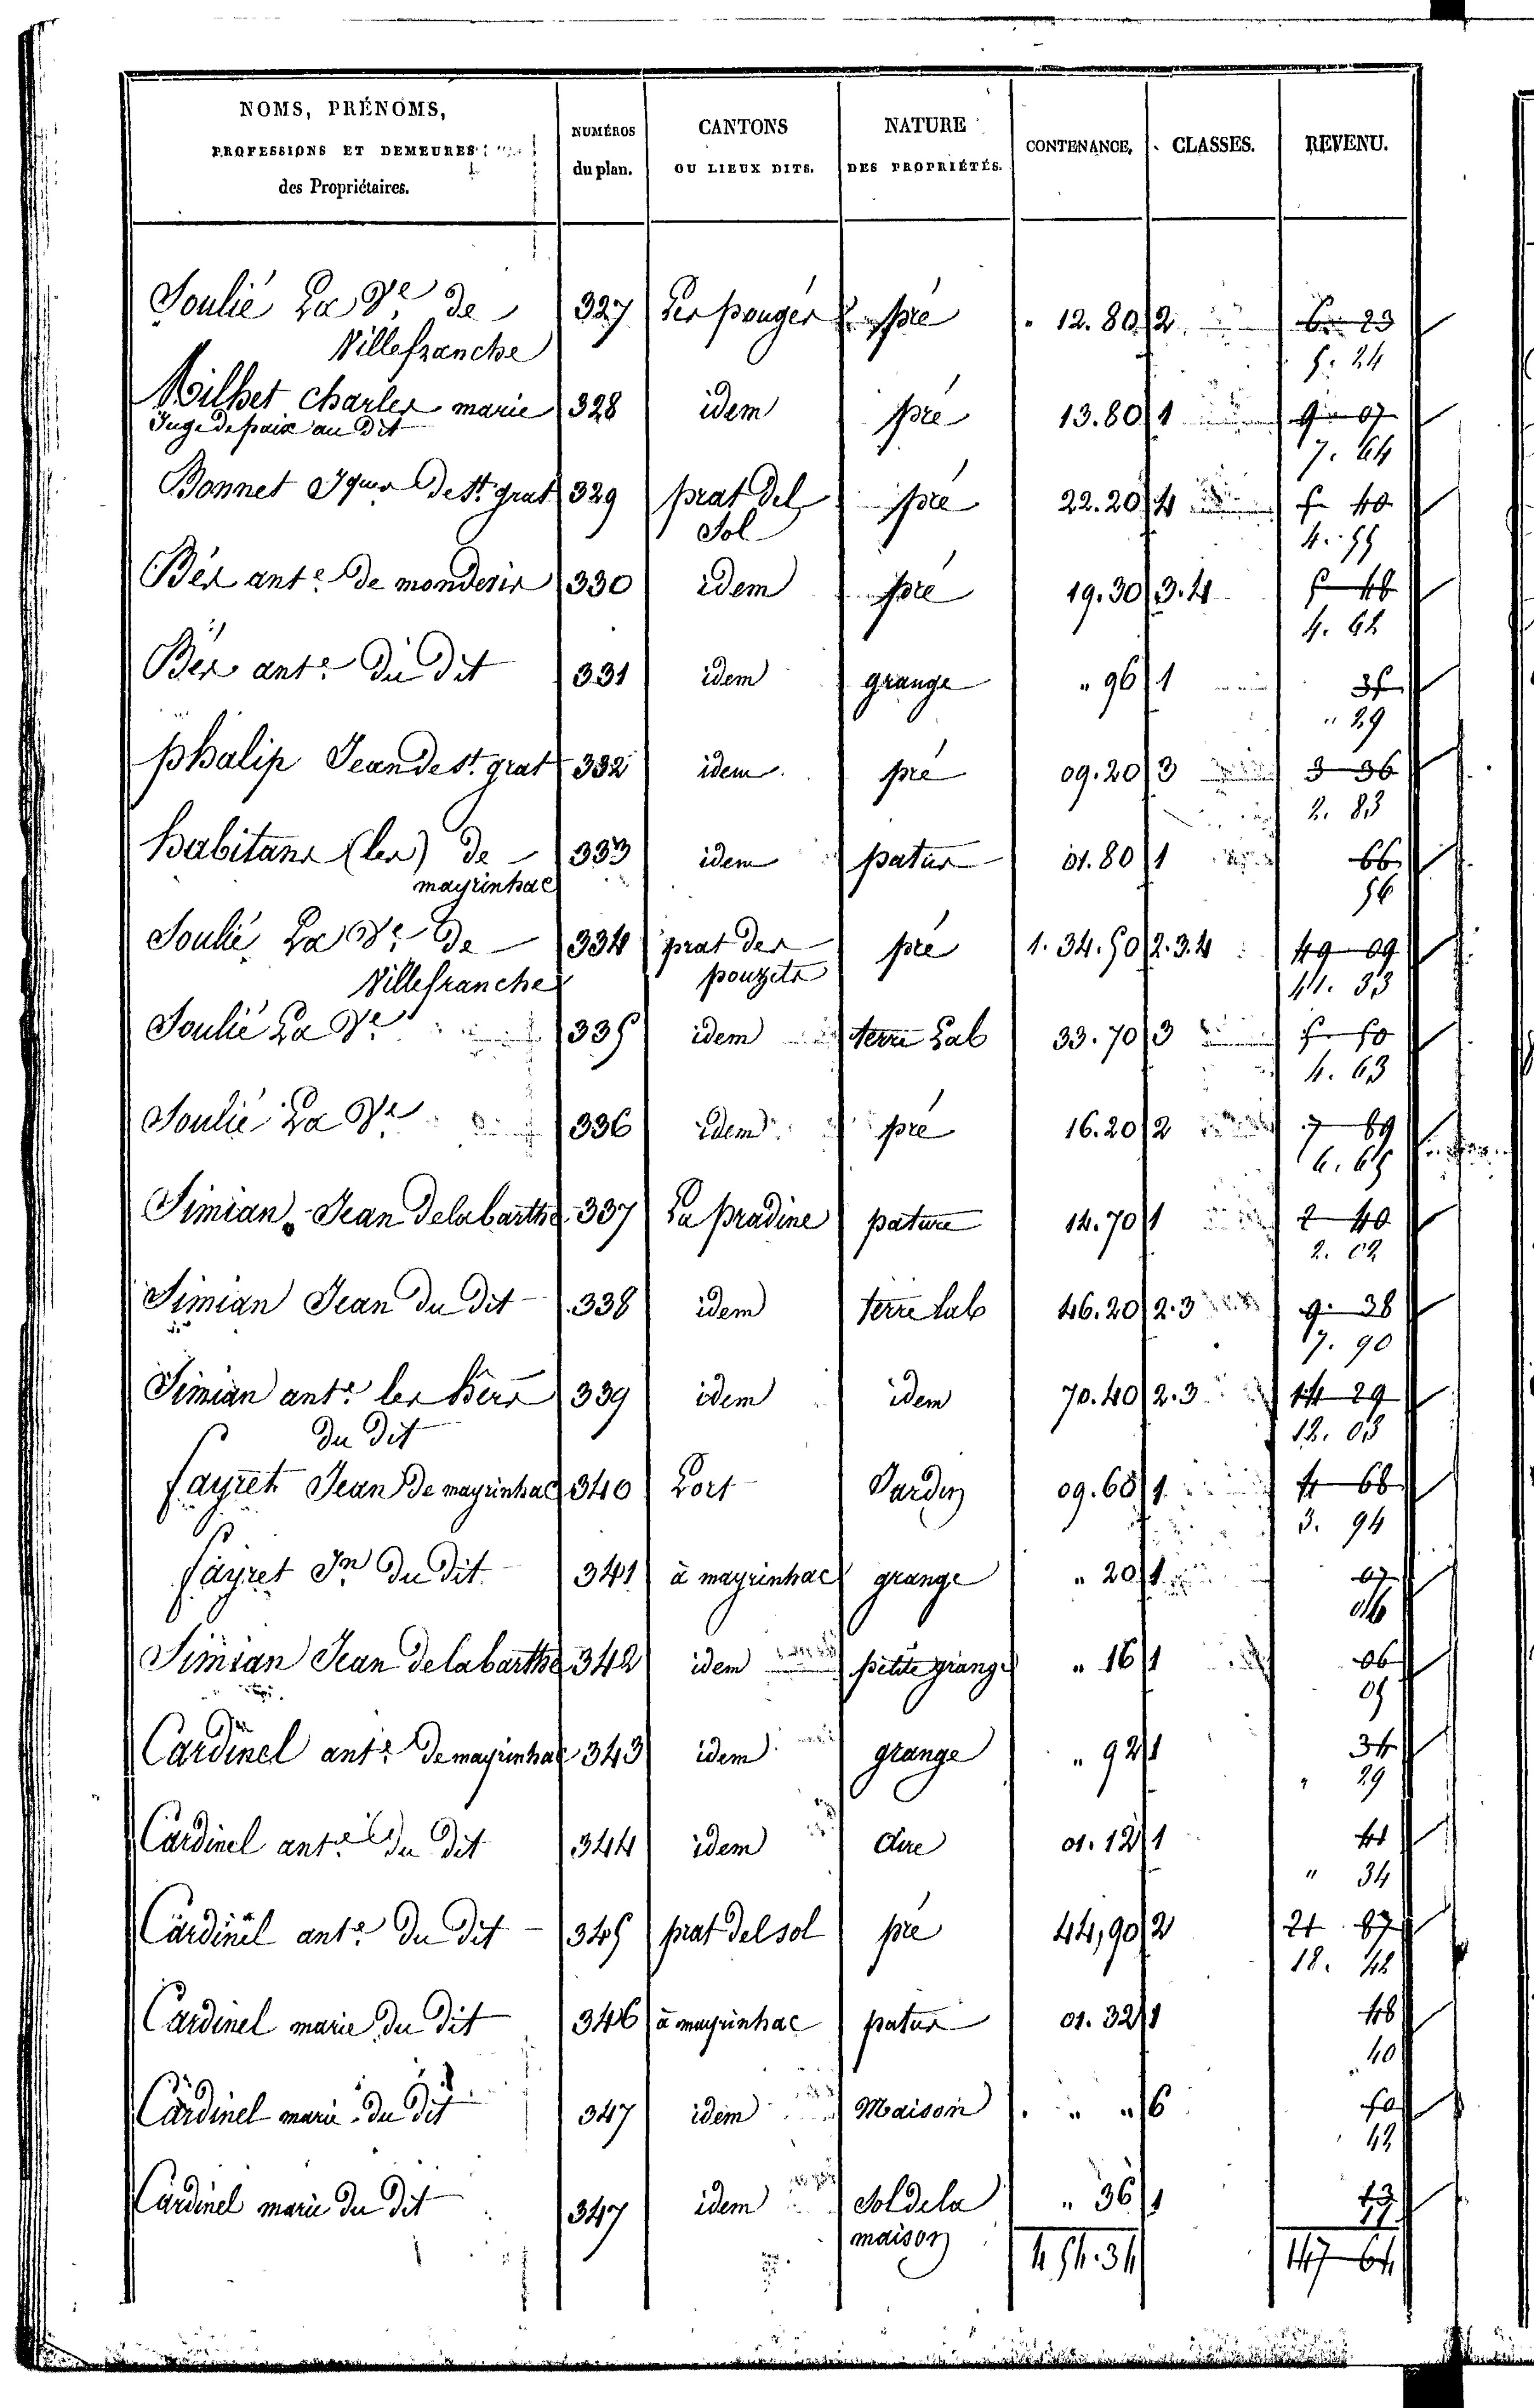 NOMS, PRÉNOMS, PROFESSIONS ET DEMEURES des Propriétaires. NUMÉROS du plan. CANTONS OU LIEUX DITS. NATURE DES PROPRIÉTÉS. CONTENANCE. CLASSES. REVENU.
Soulié La Ve de 327 Les pougés pré " 12.80 2 6. 23
Villefranche 5. 24
Milhet charles marie 328 idem pré 13.80 1 9 07
Juge de paix au Dit 7. 64
Bonnet Jques de St. grat 329 prat del pré 22.20 4 5 40
Sol 4. 55
Bés ante de mondesir 330 idem pré 19.30 3.4 5 48
4. 62
Bés ante du dit 331 idem grange " 96 1 35
" 29
phalip Jean de St. grat 332 idem pré 09.20 3 3 36
2. 83
habitans (les) de 333 idem patus 01.80 1 66
mayrinhac 56
Soulié La Ve de 334 prat des pré 1.34.50 2.3.4 49 09
Villefranche pouzets 41. 33
Soulié La Ve 335 idem terre Lab 33.70 3 5 50
4. 63
Soulié La Ve 336 idem pré 16.20 2 7 89
6. 65
Simian Jean de labarthe 337 La pradine pature 14.70 1 2 40
2. 02
Simian Jean du dit 338 idem terre lab 46.20 2.3 9. 38
7. 90
Simian ante les hérs 339 idem idem 70.40 2.3 14 29
du dit 12. 03
fayret Jean de mayrinhac 340 Lort Jardin 09.60 1 4 68
3. 94
fayret Jn du dit 341 à mayrinhac grange " 20 1 07
06
Simian Jean de labarthe 342 idem petite grange " 16 1 06
05
Cardinel ante de mayrinhac 343 idem grange " 92 1 34
" 29
Cardinel ante du dit 344 idem aire 01.12 1 41
" 34
Cardinel ante du dit 345 prat del sol pré 44,90 2 21 87
18. 42
Cardinel marie du dit 346 à mayrinhac patus 01.32 1 48
40
Cardinel marie du dit 347 idem Maison " " 6 50
42
Cardinel marie du dit 347 idem Sol de la " 36 1 13
maison 11
4 54.34 147 64